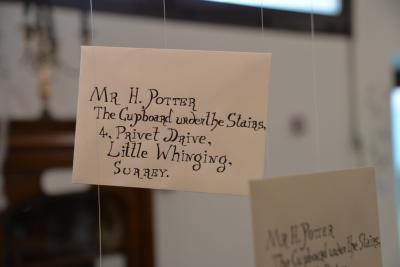 Mr H. Potter
The Cupboard under the Stairs,
4, Privet Drive,
Little Whinging,
Surrey.
Mr H. Potter
The Cupboard under the Stairs,